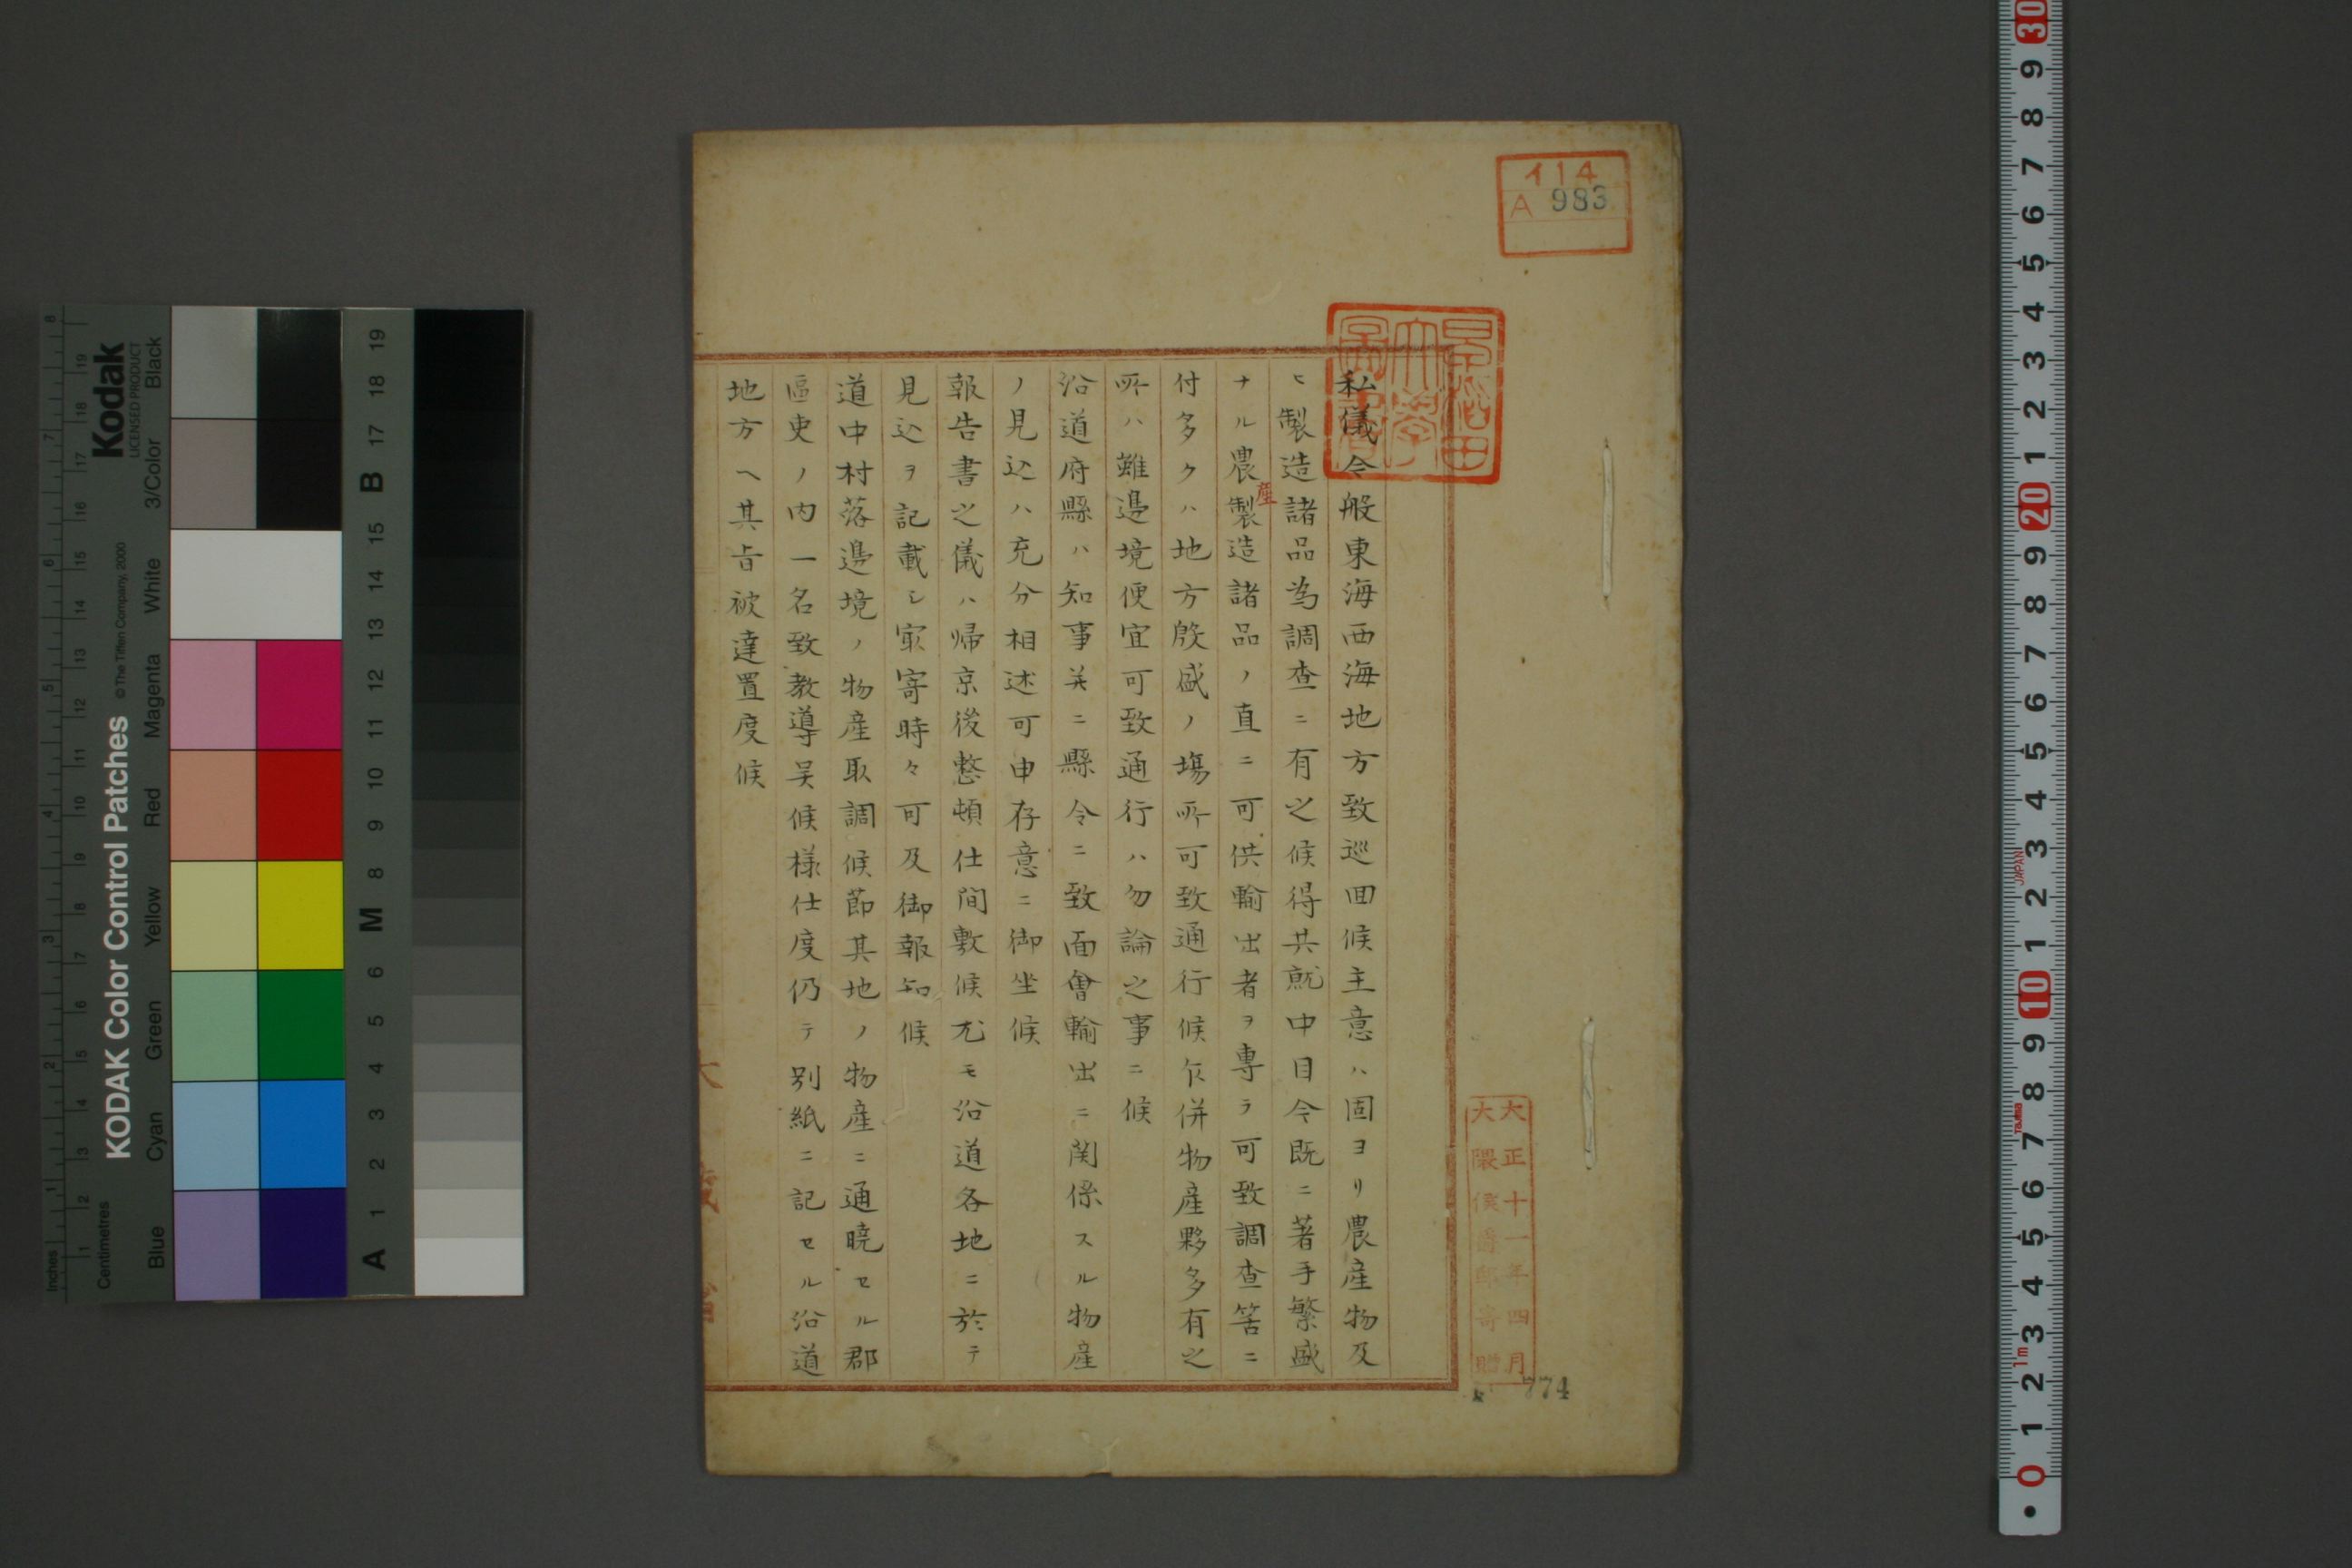 イ14
A 983
早稲田大学図書
私儀今般東海西海地方致巡回候主意ハ固ヨリ農産物及
ヒ製造諸品為調査ニ有之候得共就中目今既ニ著手繁盛
ナル農産製造諸品ノ直ニ可供輸出者ヲ専ラ可致調査筈ニ
付多クハ地方殷盛ノ場所可致通行候乍併物産夥多有之
所ハ雖邊境便宜可致通行ハ勿論之事ニ候
沿道府縣ハ知事并ニ縣令ニ致面會輸出ニ関係スル物産
ノ見込ハ充分相述可申存意ニ御坐候
報告書之儀ハ帰京後整頓仕間敷候尤モ沿道各地ニ於テ
見込ヲ記載シ冣寄時々可及御報知候
道中村落邊境ノ物産取調候節其地ノ物産ニ通曉セル郡
區吏ノ内一名致教導呉候様仕度仍テ別紙ニ記セル沿道
地方ヘ其旨被達置度候
大正十一年四月
大隈侯爵邸寄贈
774
KODAK Color Control Patches
© The Tiffen Company, 2000
Kodak
LICENSED PRODUCT
Inches
Centimetres
Blue Cyan Green Yellow Red Magenta White 3/Color Black
A 1 2 3 4 5 6 M 8 9 10 11 12 13 14 15 B 17 18 19
0 1 2 3 4 5 6 7 8 9 10 1 2 3 4 5 6 7 8 9 20 1 2 3 4 5 6 7 8 9 30
1m
TAJIMA
JAPAN